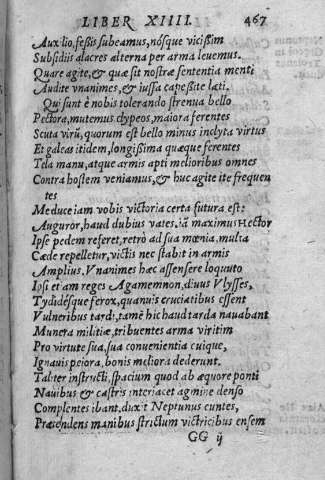 LIBER XIIII. 467
Auxilio, fessis subeamus, nósque vicissim
Subsidiis alacres alterna per arma leuemus.
Quare agite, & quæ sit nostræ sententia menti
Audite vnanimes, & iussa capessite læti.
Qui sunt è nobis tolerando strenua bello
Pectora, mutemus clypeos, maiora ferentes
Scuta virū, quorum est bello minus inclyta virtus
Et galeas itidem, longissima quæque ferentes
Tela manu, atque armis apti melioribus omnes
Contra hostem veniamus, & huc agite ite frequen
tes
Me duce iam vobis victoria certa futura est:
Auguror, haud dubius vates. iā maximus Hector
Ipse pedem referet, retrò ad sua mœnia, multa
Cæde repelletur, victis nec stabit in armis
Amplius. Vnanimes hæc assensere loquuto
Ipsi etiam reges Agamemnon, diuus Vlysses,
Tydidésque ferox, quanuis cruciatibus essent
Vulneribus tardi, tamē hic haud tarda nauabant
Munera militiæ, tribuentes arma viritim
Pro virtute sua, sua conuenientia cuique,
Ignauis peiora, bonis meliora dederunt.
Taliter instructi, spacium quod ab æquore ponti
Nauibus & castris interiacet agmine denso
Complentes ibant, duxit Neptunus euntes,
Prætendens manibus strictum victricibus ensem
GG ij